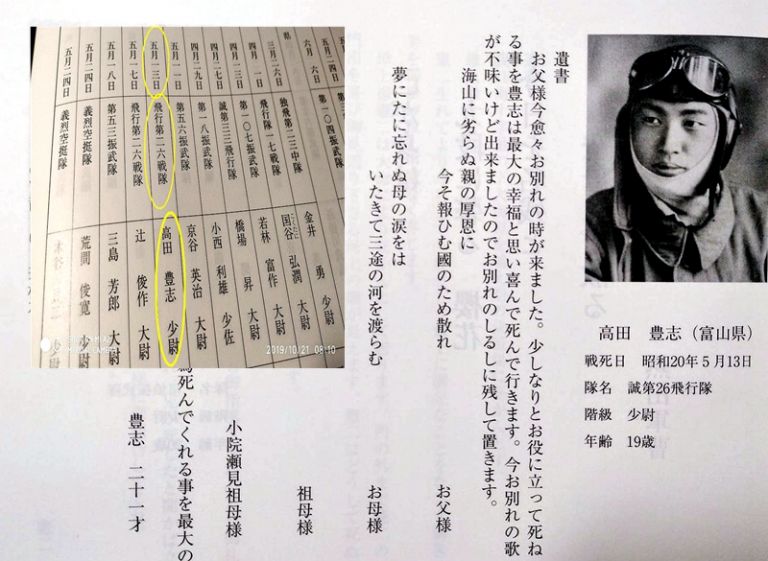 遺書
お父様今愈々お別れの時が来ました。少しなりとお役に立って死ね
る事を豊志は最大の幸福と思い喜んで死んで行きます。今お別れの歌
が不味いけど出来ましたのでお別れのしるしに残して置きます。
海山に劣らぬ親の厚恩に
今そ報ひむ國のため散れ
夢にたに忘れぬ母の涙をは
いたきて三途の河を渡らむ
お父様
お母様
祖母様
小院瀬見祖母様
死んでくれる事を最大の
豊志 二十一才
高田 豊志（富山県）
戦死日 昭和20年5月13日
隊名 誠第26飛行隊
階級 少尉
年齢 19歳
六月 六日 第一〇四振武隊 金井 勇 少尉
県
三月二六日 独飛第二三中隊 国谷 弘潤 大尉
四月 一日 飛行第一七戦隊 若林 富作 大尉
四月一二日 第一〇七振武隊 橋場 昇 大尉
四月二三日 誠第三三飛行隊 小西 利雄 少佐
四月二九日 第一八振武隊 京谷 英治 大尉
五月一一日 第五六振武隊
五月一三日 飛行第二六戦隊 高田 豊志 少尉
五月一七日 飛行第二六戦隊 辻 俊作 大尉
五月一八日 第五三振武隊 三島 芳郎 大尉
五月二四日 義烈空挺隊 荒間 俊寛 少尉
五月二四日 義烈空挺隊 少尉
2019/10/21 08:10